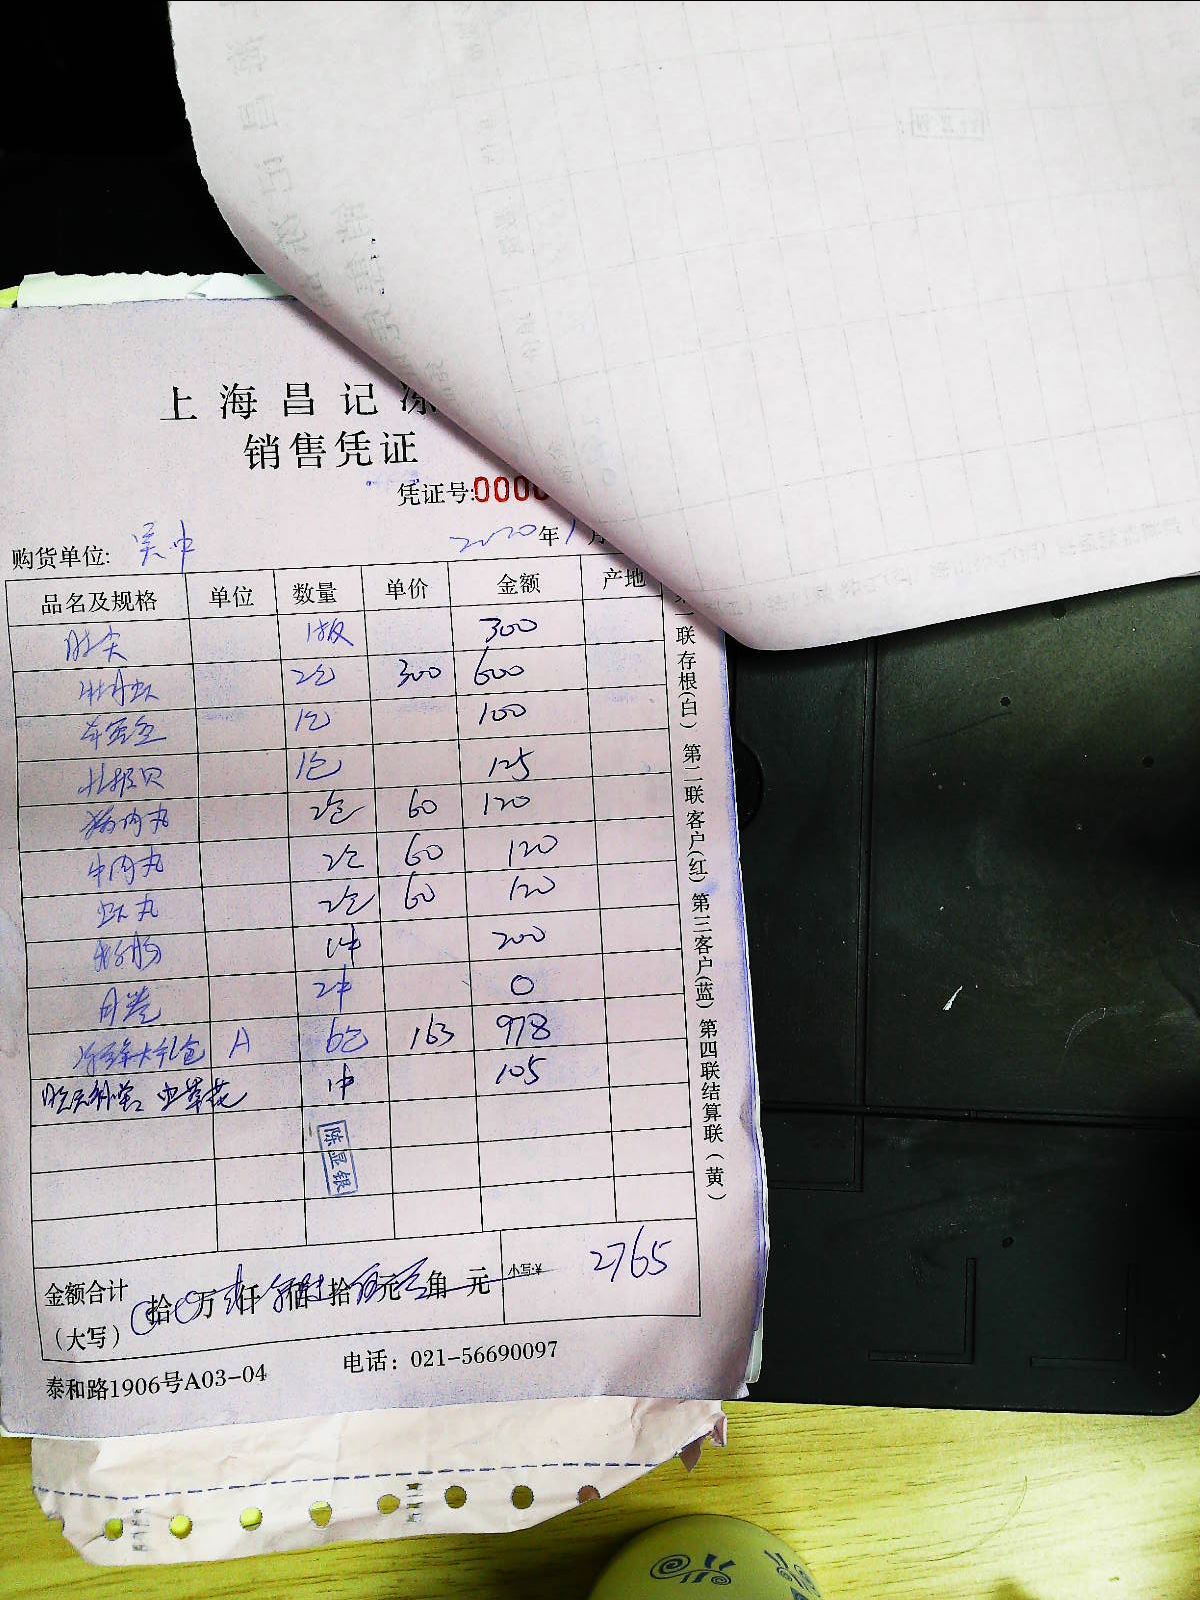 上海昌记冻
销售凭证
凭证号:000
购货单位: 吴中 2020年1月
品名及规格 单位 数量 单价 金额 产地
肚尖 1板 300
牡丹虾 2包 300 600
1包 100
北极贝 1包 125
猪肉丸 2包 60 120
牛肉丸 2包 60 120
虾丸 2包 60 120
1中 200
2中 0
大礼包 A 6包 163 978
虫草花 1中 105
陈显银
金额合计
(大写) 拾 万 仟 佰 拾 元 角 元 小写:¥ 2765
泰和路1906号A03-04 电话：021-56690097
第一联存根(白) 第二联客户(红) 第三客户(蓝) 第四联结算联(黄)